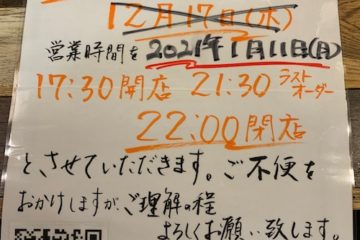 12月17日(木)
営業時間を 2021年1月11日(月)
17:30開店 21:30 ラストオーダー
22:00閉店
とさせていただきます。ご不便を
おかけしますが、ご理解の程
よろしくお願い致します。